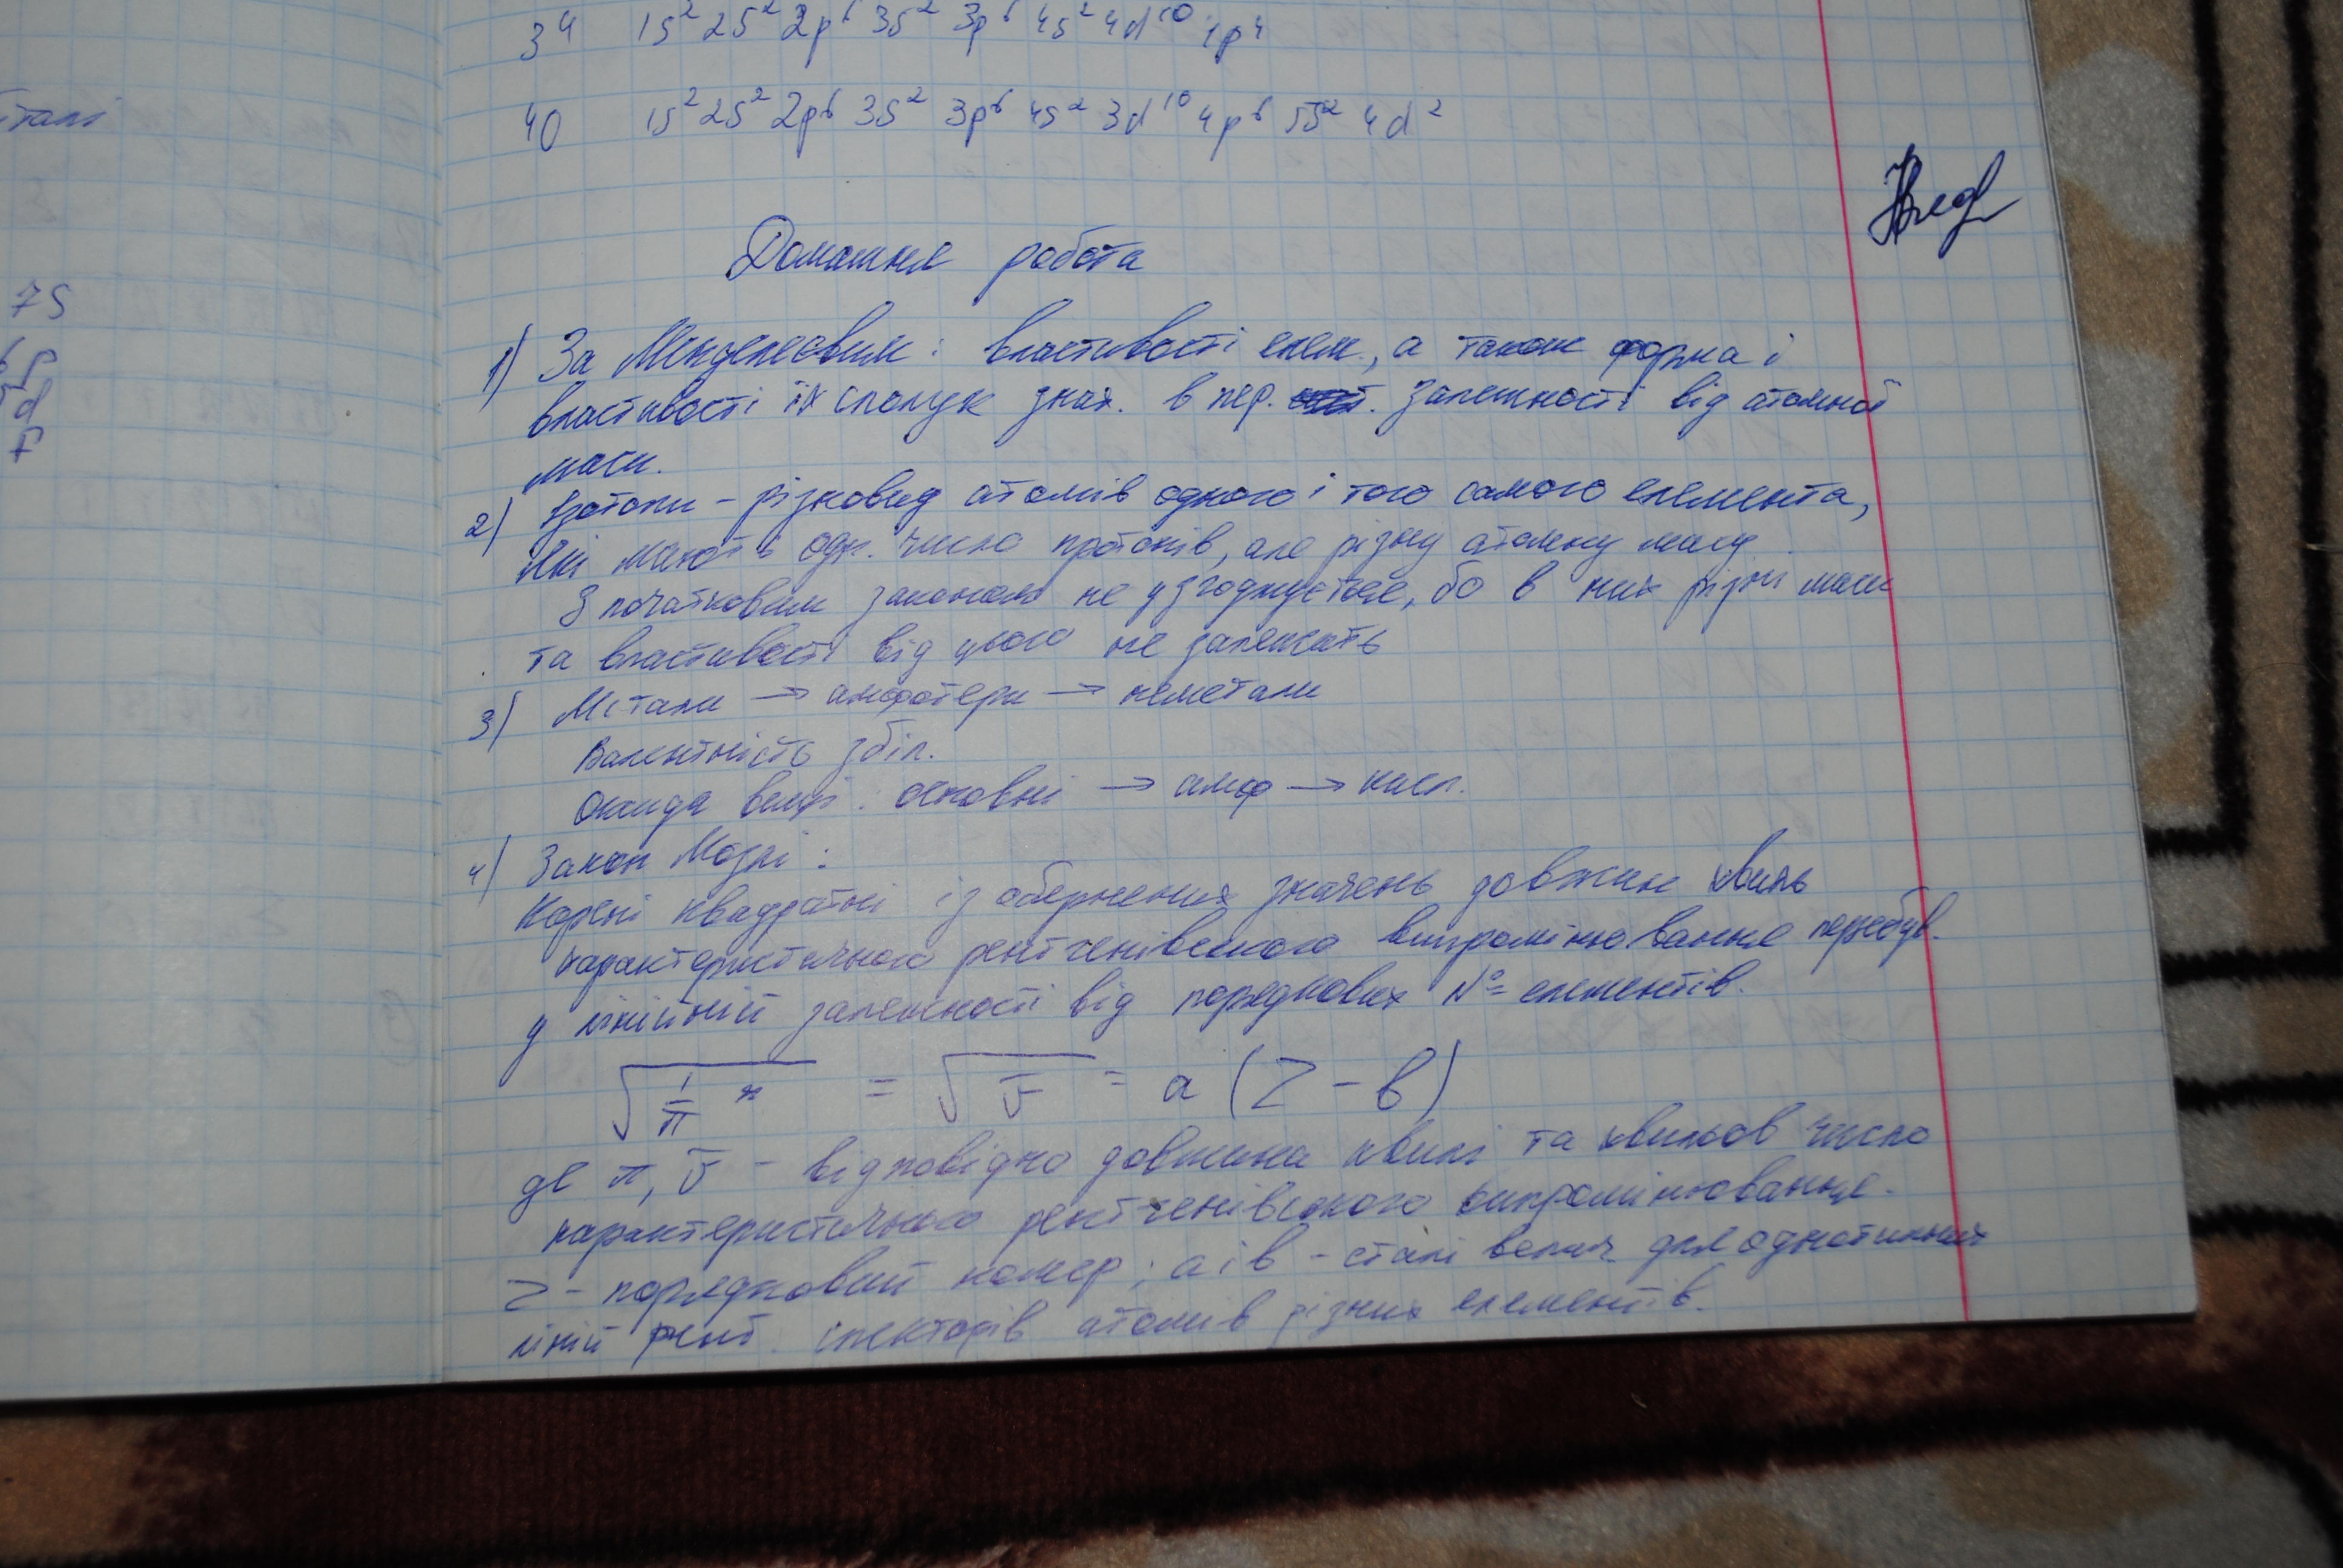 34 1s² 2s² 2p⁶ 3s² 3p⁶ 4s² 4d¹⁰ 4p⁴
40 1s² 2s² 2p⁶ 3s² 3p⁶ 4s² 3d¹⁰ 4p⁶ 5s² 4d²
Домашня робота
1) За Менделеєвим: властивості елем., а також форма і
властивості їх сполук знах. в пер. залежності від атомної
маси.
2) Ізотопи – різновид атомів одного і того самого елемента,
які мають одн. число протонів, але різну атомну масу.
З початковим законом не узгоджується, бо в них різні маси
та властивості від цього не залежать
3) Метали → амфотери → неметали
Валентність збіл.
Оксиди вищі: основні → амф → кисл.
4) Закон Мозлі:
Корені квадратні із обернених значень довжин хвиль
характеристичного рентгенівського випромінювання перебув.
у лінійній залежності від порядкових № елементів.
= √ν̄ = a (Z – b)
де π, ν̄ – відповідно довжина хвилі та хвильов число
характеристичного рентгенівського випромінювання.
Z – порядковий номер; a і b – сталі велич для однотипних
ліній рент. спекторів атомів різних елементів.
7S